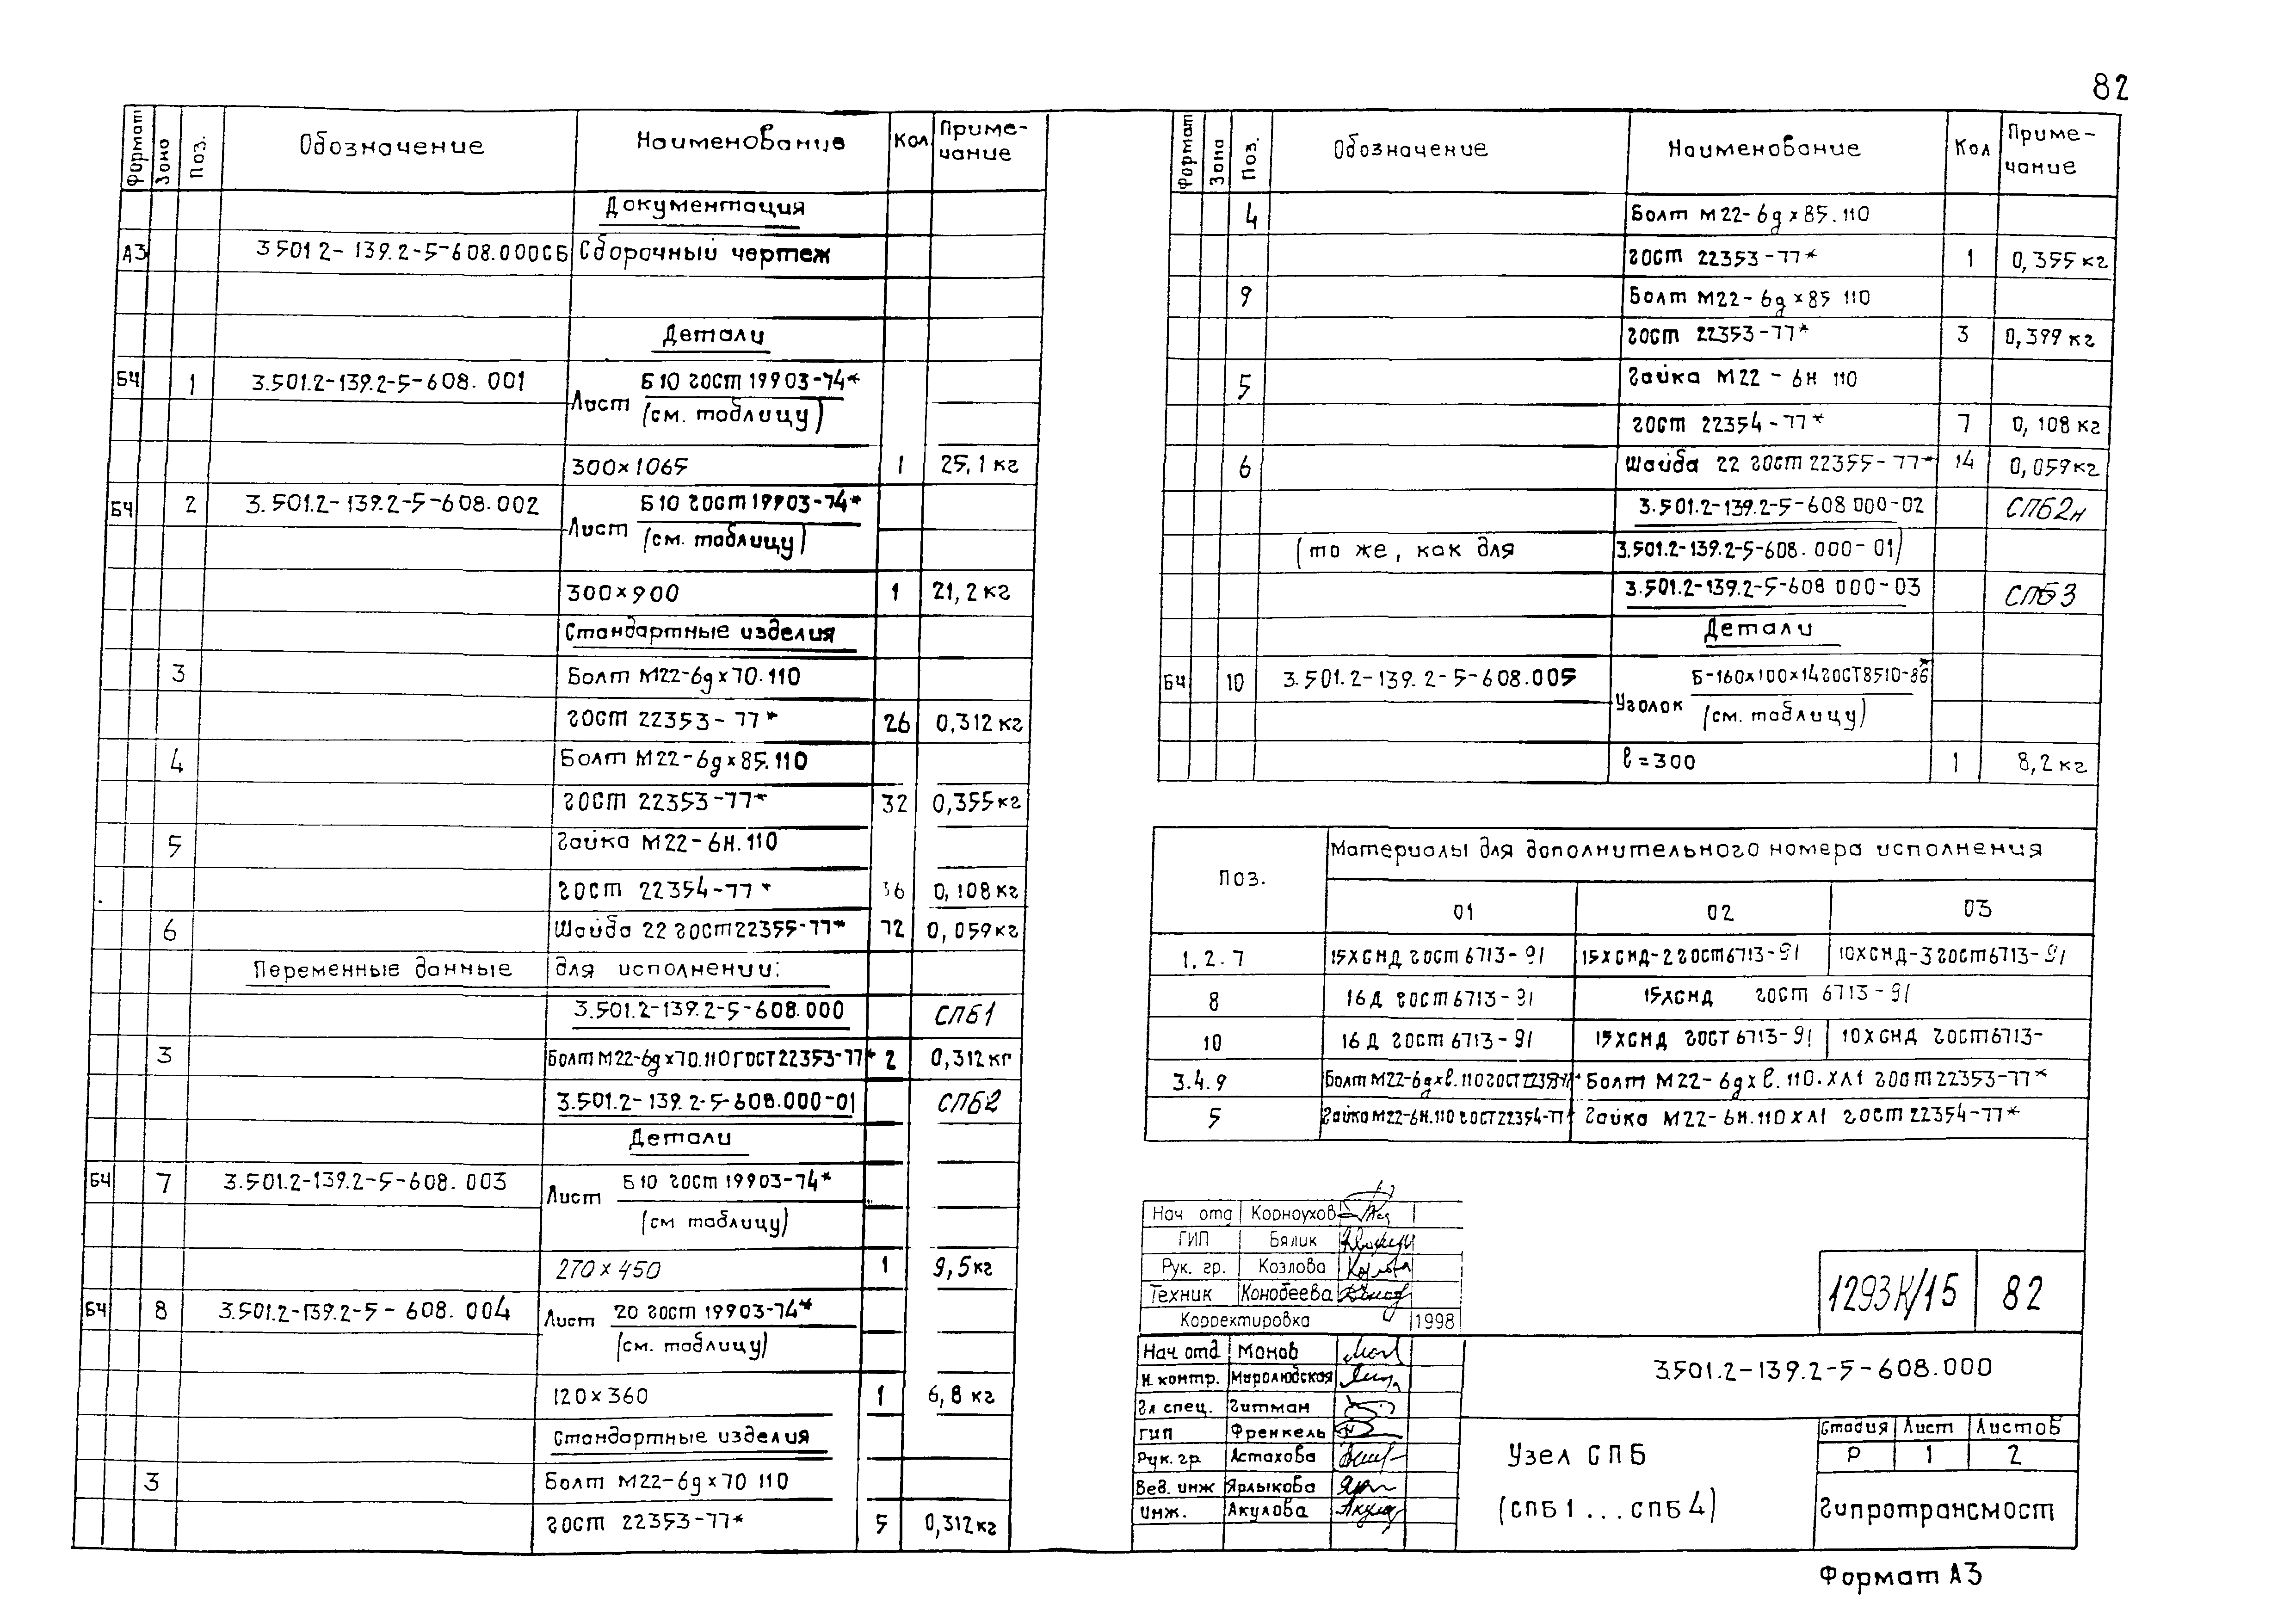 82
Формат Зона Поз. Обозначение Наименование Кол Приме-чание
Документация
А3 3.501 2-139.2-5-608.000СБ Сборочный чертеж
Детали
БЧ 1 3.501.2-139.2-5-608.001 Лист Б10 гост 19903-74*
(см. таблицу)
300×1065 1 25,1 кг
БЧ 2 3.501.2-139.2-5-608.002 Лист Б10 гост 19903-74*
(см. таблицу)
300×900 1 21,2 кг
Стандартные изделия
3 Болт М22-6g×70.110
гост 22353-77* 26 0,312 кг
4 Болт М22-6g×85.110
гост 22353-77* 32 0,355 кг
5 Гайка М22-6Н.110
гост 22354-77* 36 0,108 кг
6 Шайба 22 гост 22355-77* 72 0,059 кг
Переменные данные для исполнении:
3.501.2-139.2-5-608.000 СПБ1
3 Болт М22-6g×70.110 ГОСТ 22353-77* 2 0,312 кг
3.501.2-139.2-5-608.000-01 СПБ2
Детали
БЧ 7 3.501.2-139.2-5-608.003 Лист Б10 гост 19903-74*
(см таблицу)
270×450 1 9,5 кг
БЧ 8 3.501.2-139.2-5-608.004 Лист 20 гост 19903-74*
(см. таблицу)
120×360 1 6,8 кг
Стандартные изделия
3 Болт М22-6g×70 110
гост 22353-77* 5 0,312 кг
Формат Зона Поз. Обозначение Наименование Кол Приме-чание
4 Болт М22-6g×85.110
гост 22353-77* 1 0,355 кг
9 Болт М22-6g×85 110
гост 22353-77* 3 0,399 кг
5 Гайка М22-6Н 110
гост 22354-77* 7 0,108 кг
6 Шайба 22 гост 22355-77* 14 0,059 кг
3.501.2-139.2-5-608 000-02 СПБ2н
(то же, как для 3.501.2-139.2-5-608.000-01)
3.501.2-139.2-5-608 000-03 СПБ3
Детали
БЧ 10 3.501.2-139.2-5-608.005 Уголок Б-160×100×14 ГОСТ 8510-86*
(см. таблицу)
l=300 1 8,2 кг
Поз. Материалы для дополнительного номера исполнения
01 02 03
1.2.7 15ХСНД гост 6713-91 15ХСНД-2 гост 6713-91 10ХСНД-3 гост 6713-91
8 16Д гост 6713-91 15ХСНД гост 6713-91
10 16Д гост 6713-91 15ХСНД ГОСТ 6713-91 10ХСНД гост 6713-
3.4.9 Болт М22-6g×l.110 гост 22353-77* Болт М22-6g×l.110.ХЛ1 гост 22353-77*
5 Гайка М22-6Н.110 ГОСТ 22354-77* Гайка М22-6Н.110ХЛ1 гост 22354-77*
Нач отд Корноухов
ГИП Бялик
Рук. гр. Козлова
Техник Конобеева
Корректировка 1998
1293К/15 82
Нач отд Монов
Н. контр. Миролюбская
Гл спец. Гитман
ГИП Френкель
Рук. гр Астахова
Вед. инж Ярлыкова
Инж. Акулова
3.501.2-139.2-5-608.000
Узел СПБ
(СПБ1...СПБ4)
Стадия Лист Листов
Р 1 2
Гипротрансмост
Формат А3